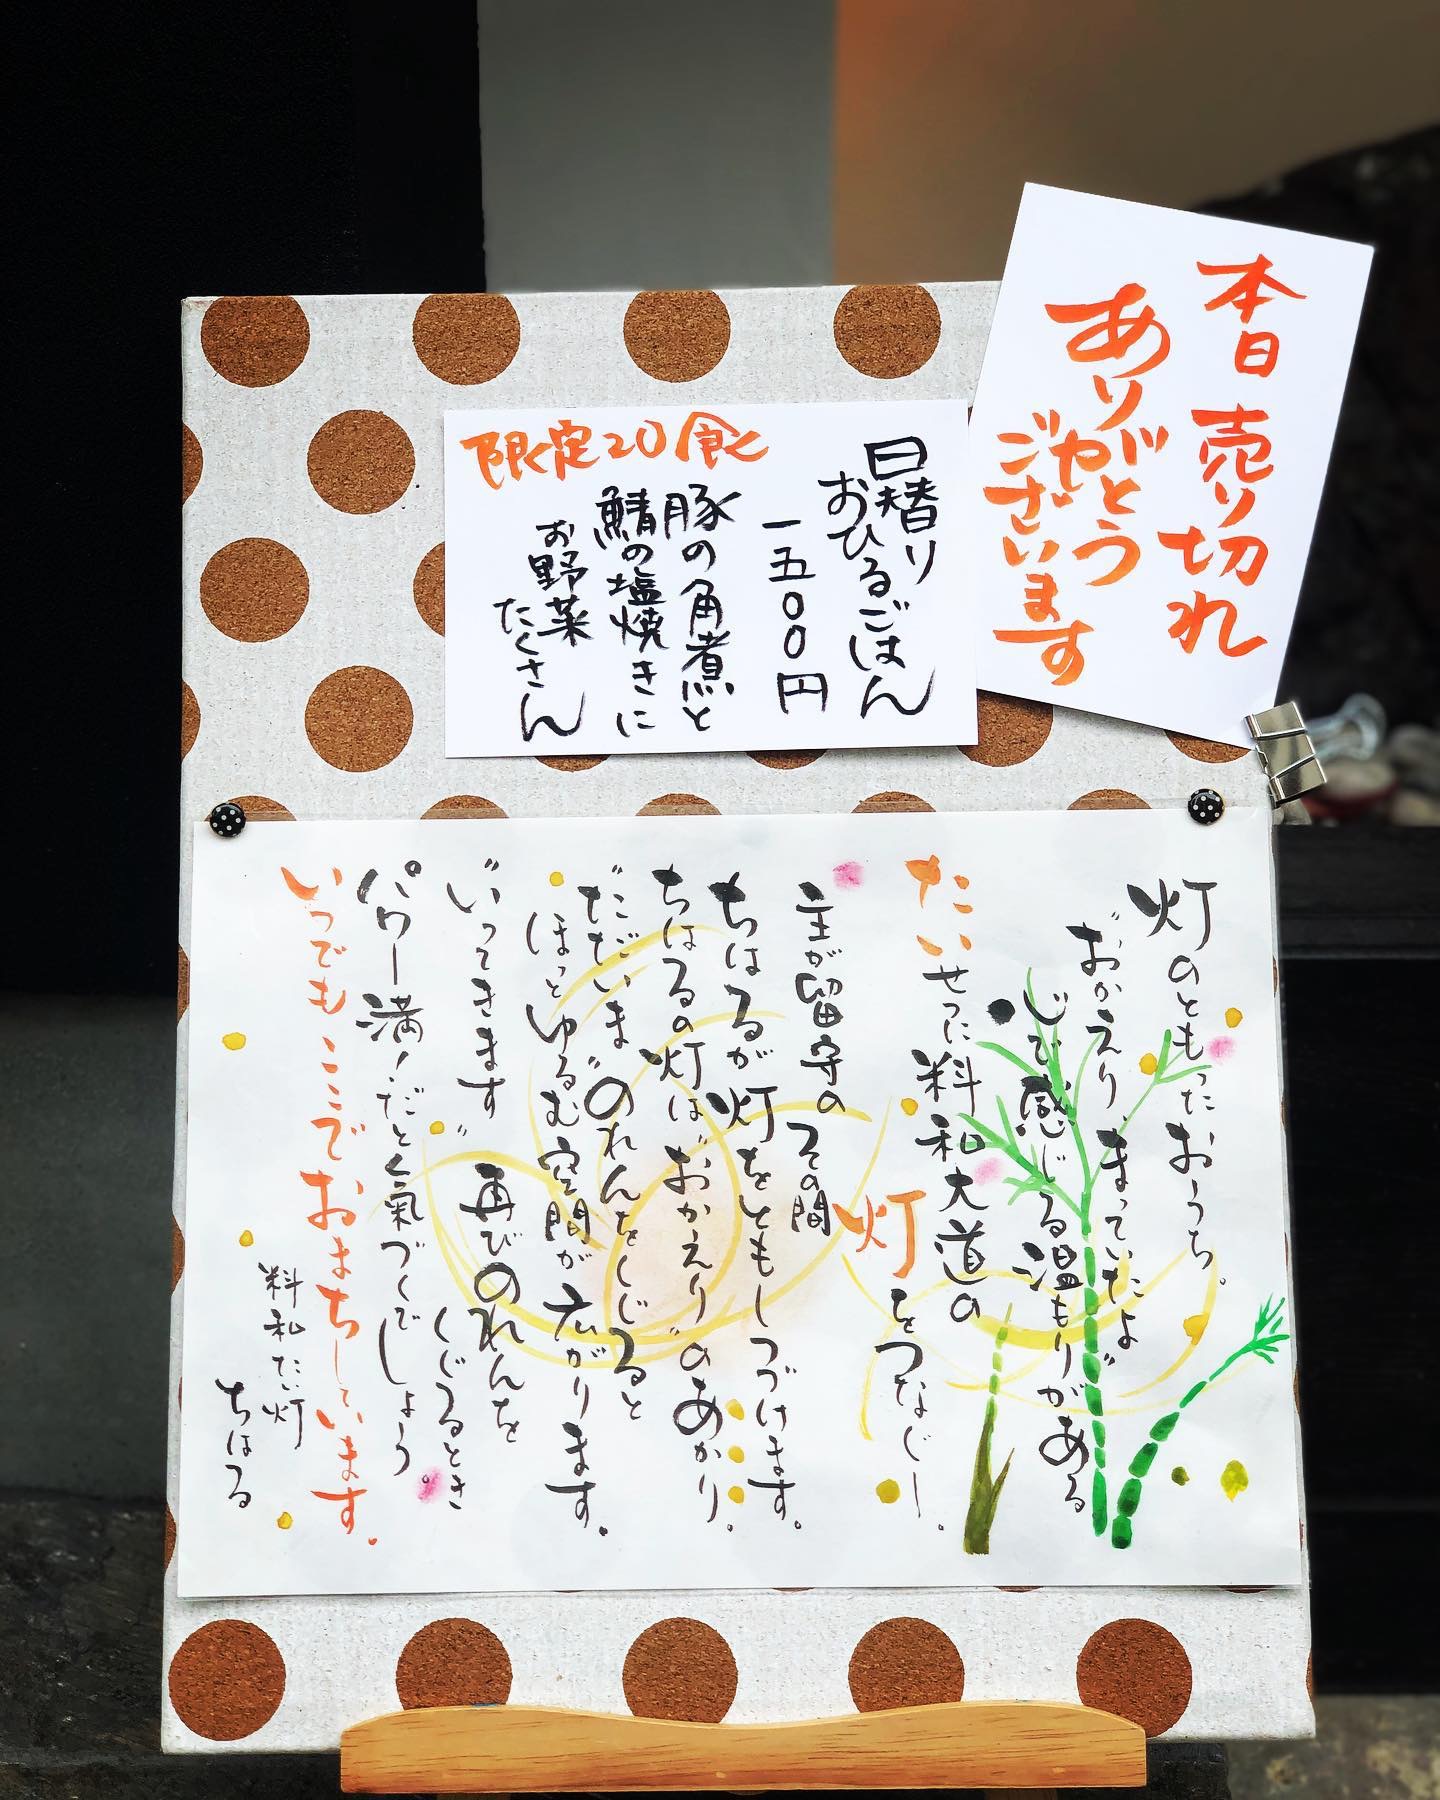 本日売り切れ
ありがとう
ございます
日替り
おひるごはん
一五〇〇円
限定20食
豚の角煮と
鯖の塩焼きに
お野菜
たくさん
灯のともったおうち。
"おかえり、まっていたよ"
じで感じる温もりがある
たいせつに料和大道の
灯をつなぐ!。
主が留守のその間
ちはるが灯をともしつづけます。
ちはるの灯は"おかえり"のあかり。
"ただいま"のれんをくぐると
ほっとゆるむ空間が広がります。
"いってきます"再びのれんを
くぐるとき
パワー満!だと氣づくでしょう
いつでもここでおまちしています。
料和たい灯
ちはる